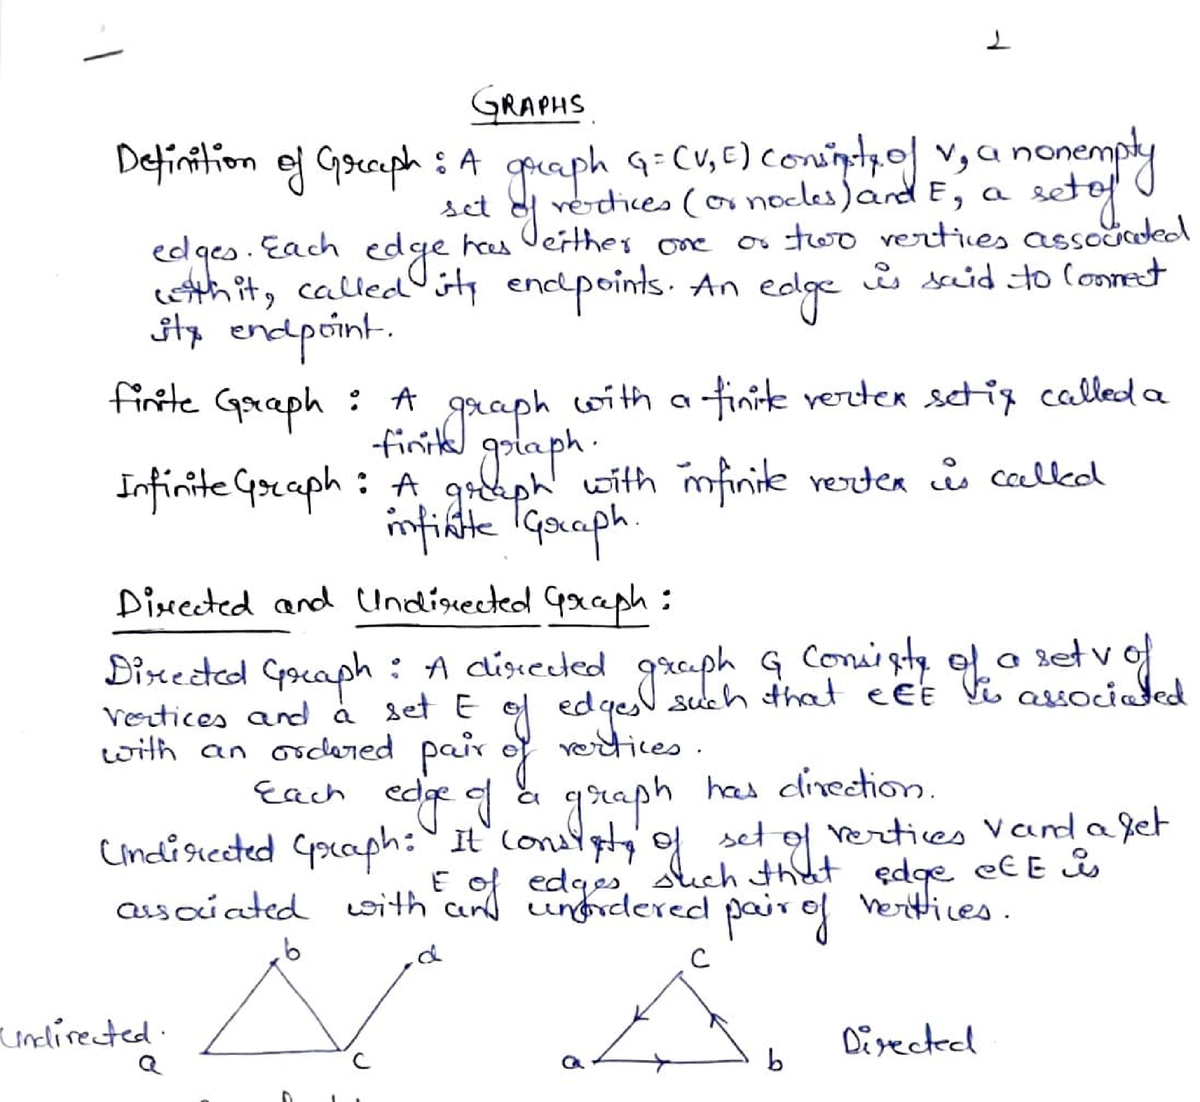 1
GRAPHS
Definition of Graph : A graph G=(V,E) consists of V, a nonempty
set of vertices (or nodes) and E, a set of
edges. Each edge has either one or two vertices associated
with it, called its endpoints. An edge is said to connect
its endpoint.
finite Graph : A graph with a finite vertex set is called a
finite graph.
Infinite Graph : A graph with infinite vertex is called
infinite Graph.
Directed and Undirected Graph :
Directed Graph : A directed graph G consists of a set V of
vertices and a set E of edges such that e∈E is associated
with an ordered pair of vertices.
Each edge of a graph has direction.
Undirected Graph : It consists of set of vertices V and a set
E of edges such that edge e∈E is
associated with an unordered pair of vertices.
b d c
Undirected. a c a b Directed